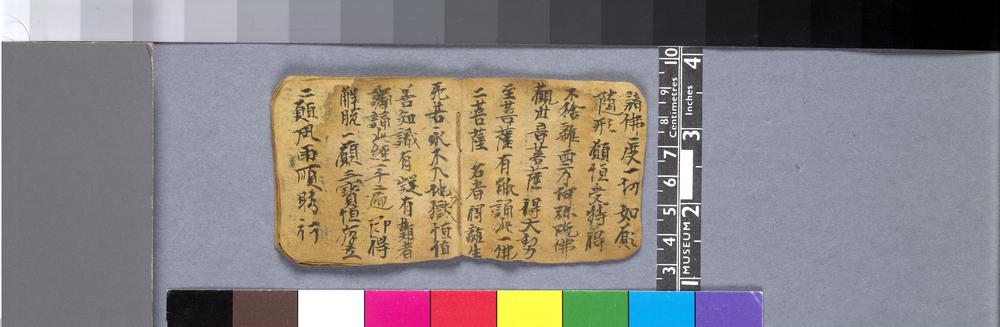 諸佛度一切如願
隨形願恒受持得
不捨離西方阿弥陁佛
觀世音菩薩得大勢
至菩薩有能誦此一佛
二菩薩名者得離生
死苦永不入地獄恒值
善知識有有難者
讀誦此經千遍即得
解脱一願三寶恒存立
二願風雨順時行
3 4 5 6 7 8 9 10
Centimetres
MUSEUM
1 2 3 4
Inches